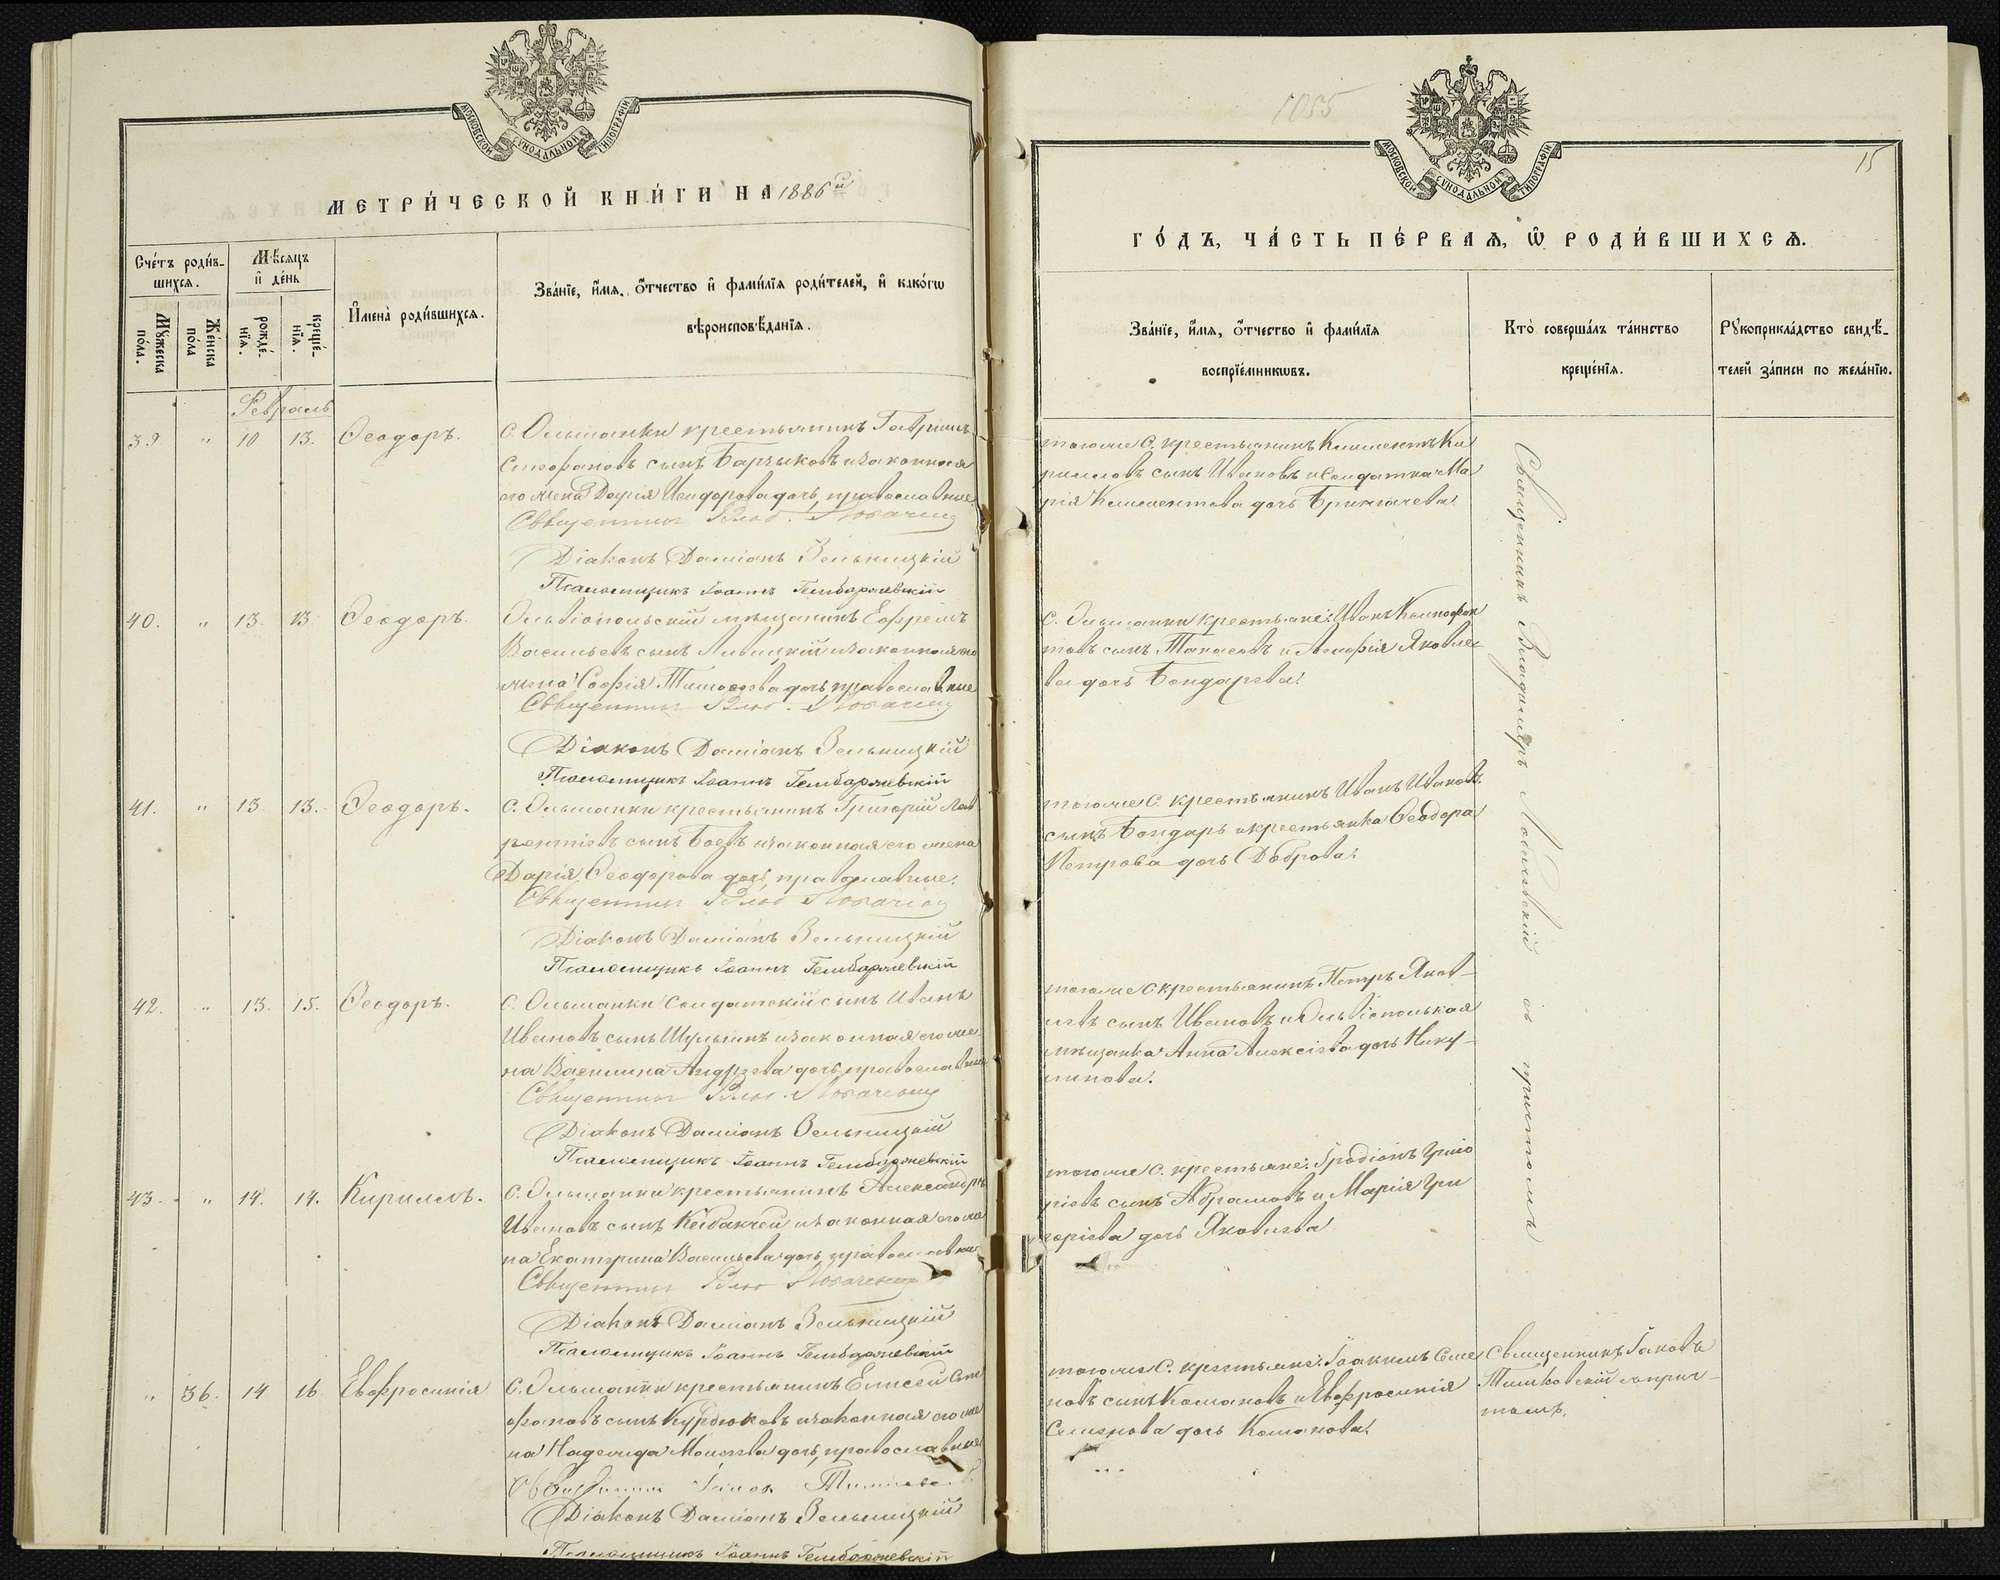 МОСКОВСКОЙ СѴНОДАЛЬНОЙ ТИПОГРАФІИ
МЕТРИ́ЧЕСКОЙ КНИ́ГИ НА 1886й
Сче́тъ роди́в-
шихсѧ.
Мѣ́сѧцъ
и҆ де́нь
Мꙋ́жеска
по́ла.
Же́нска
по́ла
рожде́-
нїѧ.
креще́-
нїѧ.
И҆мена̀ роди́вшихсѧ.
Зва́нїе, и҆́мѧ, ѻ҆́тчество и҆ фами́лїѧ роди́телей, и҆ како́гѡ
вѣроисповѣ́данїѧ.
Февраль
39 " 10 13. Ѳеодоръ.
С. Ольшанки крестьянинъ Гавріилъ
Стефановъ сынъ Барзыковъ и законная
его жена Дарія Исидорова дочь, православные
Священникъ
Діаконъ Даміанъ Зельницкій
Псаломщикъ Іоаннъ Гембаржевскій
40. " 13 13 Ѳеодоръ.
Ольвіопольскій мѣщанинъ Ефремъ
Васильевъ сынъ и законная его
жена Софія Тимоѳеева дочь, православные
Священникъ
Діаконъ Даміанъ Зельницкій
Псаломщикъ Іоаннъ Гембаржевскій
41. " 13 13. Ѳеодоръ.
С. Ольшанки крестьянинъ Григорій Лав
рентіевъ сынъ Боевъ и законная его жена
Дарія Ѳеодорова дочь, православные.
Священникъ
Діаконъ Даміанъ Зельницкій
Псаломщикъ Іоаннъ Гембаржевскій
42. " 13. 15. Ѳеодоръ.
С. Ольшанки Солдатскій сынъ Иванъ
Ивановъ сынъ Шульгинъ и законная его же
на Василина Андреева дочь, православные
Священникъ
Діаконъ Даміанъ Зельницкій
Псаломщикъ Іоаннъ Гембаржевскій
43. " 14. 14. Кириллъ.
С. Ольшанки крестьянинъ Александръ
Ивановъ сынъ и законная его же
на Екатерина Васильева дочь, православные
Священникъ
Діаконъ Даміанъ Зельницкій
Псаломщикъ Іоаннъ Гембаржевскій
" 36. 14 16. Евфросинія
С. Ольшанки крестьянинъ Елисей Сте
фановъ сынъ Курдюковъ и законная его же
на Надежда Моисеева дочь, православные
Священникъ Іаковъ
Діаконъ Даміанъ Зельницкій
Псаломщикъ Іоаннъ Гембаржевскій
1055
МОСКОВСКОЙ СѴНОДАЛЬНОЙ ТИПОГРАФІИ
15
ГО́ДЪ, ЧА́СТЬ ПЕ́РВАѦ, Ѡ҆ РОДИ́ВШИХСѦ.
Зва́нїе, и҆́мѧ, ѻ҆́тчество и҆ фами́лїѧ
воспрїе́мникѡвъ.
Кто̀ соверша́лъ та́инство
креще́нїѧ.
Рꙋкоприкла́дство свидѣ́-
телей за́писи по жела́нїю.
тогоже С. крестьянинъ Климентъ Ки
рилловъ сынъ Ивановъ и Солдатка Ма
рія Климентова дочь
С. Ольшанки крестьяне: Иванъ
товъ сынъ и Яковле
ва дочь Бондарева.
тогоже С. крестьянинъ Иванъ Ивановъ
сынъ Бондарь и крестьянка Ѳеодора
Петрова дочь Доброва.
тогоже С. крестьянинъ Петръ Яков-
левъ сынъ Ивановъ и Ольвіопольская
мѣщанка Анна Алексіева дочь Нику-
линова.
тогоже С. крестьяне: Іродіонъ Григо
ріевъ сынъ Абрамовъ и Марія Гри
горіева дочь Яковлева
тогоже С. крестьяне: Іоакимъ Семе
новъ сынъ Комановъ и Евфросинія
Семенова дочь Команова.
Священникъ Владимиръ Лобачевскій съ причтомъ
Священникъ Іаковъ
Тишковскій съ прич-
томъ.